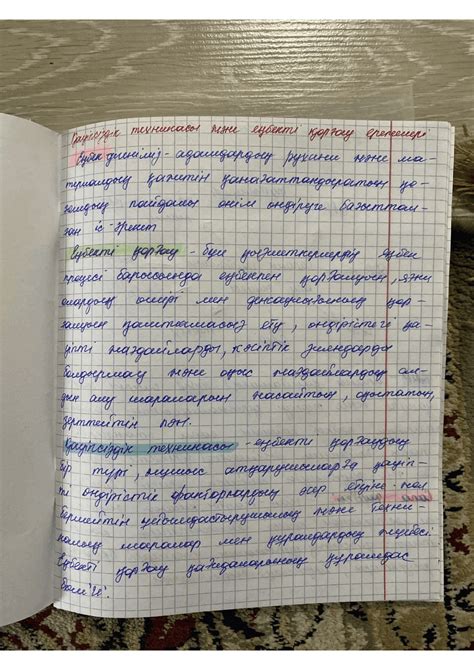 Қауіпсіздік техникасы және еңбекті қорғау ережелері
Еңбек дегеніміз - адамдардың рухани және ма-
териалдық қажетін қанағаттандыратын қо-
ғамдық пайдалы өнім өндіруге бағыттал-
ған іс-әрекет
Еңбекті қорғау - бұл қызметкерлердің еңбек
процесі барысында еңбекпен қорғалуын, яғни
олардың өмірі мен денсаулығының қор-
ғалуын қамтамасыз ету, өндірістегі қа-
уіпті жағдайларды, кәсіптік зияндарды
болдырмау және оқыс жағдайлардың ал-
дын алу шараларын жасайтын,
зерттейтін пән.
Қауіпсіздік техникасы - еңбекті қорғаудың
бір түрі, жұмыс атқарушыларға қауіп-
ті өндірістік факторлардың әсер етуіне жол
бермейтін ұйымдастырушылық және техни-
калық шаралар мен құралдардың жүйесі.
Еңбекті қорғау қағидаларының құрамдас
бөлігі.